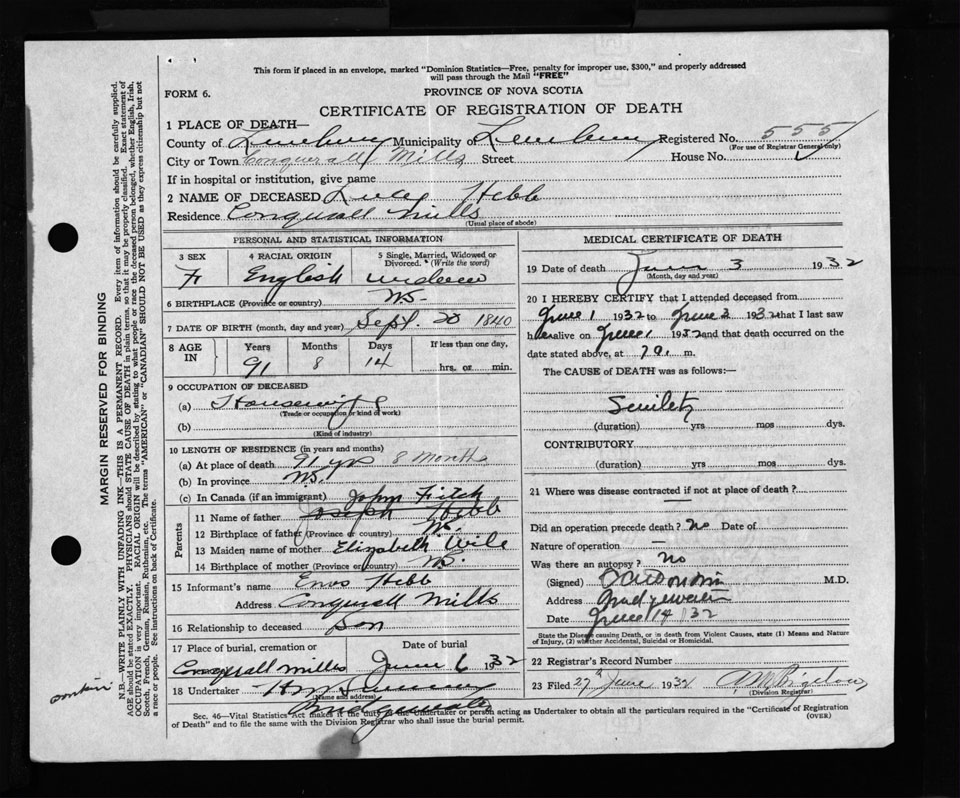 This form if placed in an envelope, marked "Dominion Statistics—Free, penalty for improper use, $300," and properly addressed
will pass through the Mail "FREE"
FORM 6.
PROVINCE OF NOVA SCOTIA
CERTIFICATE OF REGISTRATION OF DEATH
1 PLACE OF DEATH—
County of Lunenburg Municipality of Lunenburg Registered No. 555
(For use of Registrar General only)
City or Town Conquerall Mills Street House No.
If in hospital or institution, give name
2 NAME OF DECEASED Lucy Hebb
Residence Conquerall Mills
(Usual place of abode)
PERSONAL AND STATISTICAL INFORMATION
3 SEX 4 RACIAL ORIGIN 5 Single, Married, Widowed or Divorced. (Write the word)
F English widow
6 BIRTHPLACE (Province or country) NS
7 DATE OF BIRTH (month, day and year) Sept. 20 1840
8 AGE IN Years Months Days If less than one day,
91 8 14 hrs. or min.
9 OCCUPATION OF DECEASED
(a) Housewife
(Trade or occupation or kind of work)
(b)
(Kind of industry)
10 LENGTH OF RESIDENCE (in years and months)
(a) At place of death 91 yrs 8 Months
(b) In province N.S.
(c) In Canada (if an immigrant)
John Fitch
11 Name of father Joseph Hebb
12 Birthplace of father (Province or country) NS.
13 Maiden name of mother Elizabeth Wile
14 Birthplace of mother (Province or country) NS.
Parents
15 Informant's name Enos Hebb
Address Conquerall Mills
16 Relationship to deceased Son
17 Place of burial, cremation or removal Date of burial
Conquerall Mills June 6 1932
18 Undertaker
(Name and address)
Bridgewater
MEDICAL CERTIFICATE OF DEATH
19 Date of death June 3 1932
(Month, day and year)
20 I HEREBY CERTIFY that I attended deceased from
June 1 1932 to June 3 1932 that I last saw
her alive on June 1 1932 and that death occurred on the
date stated above, at 7 a. m.
The CAUSE of DEATH was as follows:—
Senility
(duration) yrs mos dys.
CONTRIBUTORY
(duration) yrs mos dys.
21 Where was disease contracted if not at place of death?
Did an operation precede death? no Date of
Nature of operation —
Was there an autopsy? No
(Signed) M.D.
Address Bridgewater
Date June 14 32
State the Disease causing Death, or in death from Violent Causes, state (1) Means and Nature
of Injury, (2) whether Accidental, Suicidal or Homicidal.
22 Registrar's Record Number
23 Filed 27th June 1932 Bigelow
(Division Registrar)
Sec. 46—Vital Statistics Act makes it the duty of the Undertaker or person acting as Undertaker to obtain all the particulars required in the "Certificate of Registration
of Death" and to file the same with the Division Registrar who shall issue the burial permit.
(OVER)
MARGIN RESERVED FOR BINDING
N.B.—WRITE PLAINLY WITH UNFADING INK—THIS IS A PERMANENT RECORD. Every item of information should be carefully supplied.
AGE should be stated EXACTLY. PHYSICIANS should STATE CAUSE OF DEATH in plain terms, so that it may be properly classified. Exact statement of
OCCUPATION is very important. RACIAL ORIGIN will be described by stating to what people or race the deceased person belonged, whether English, Irish,
Scotch, French, German, Russian, Ruthenian, etc. The terms "AMERICAN" or "CANADIAN" SHOULD NOT BE USED as they express citizenship but not
a race or people. See instructions on back of Certificate.